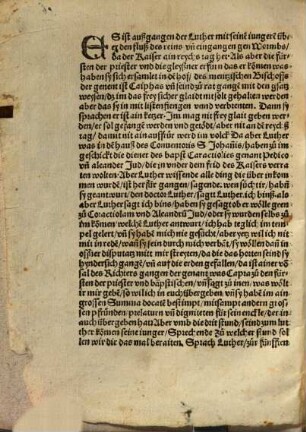 ES ist außgangen der Luther mit seinē iungerē üb
er den fluß des reins vñ eingangen gen Wormbs/
da der Kaiser ain reychs tag her. Als aber die für
sten der priester vnd die gleyßner erfurn das er komen was
haben sy sich ersamlet in dē hof des mentzischen Bischoffs
der genent ist Caiphas vñ seind zū rat gangē mit den glaß
weyssen/ im das frey sicher glaid nit solt gehalten werden
aber das sy in mit listen fiengen vnd verbrenten. Dann sy
sprachen er ist ain ketzer. Im mag nit frey glait geben wer
den/ er sol gefangē werden vnd getödt/ aber nit an dē reych s
tag/ damit nit ain auffrür werd im volck Da aber Luther
was in dē hauß des Conuentoris S Johānis/ haben zū im
geschickt die diener des bapsts Caraciolees genant Pedico
vñ aleander Jud/ die in vnder dem frid des Kaisers verra
ten wolten Aber Luther wissende alle ding die über in kom
men wurden/ ist für her gangen sagende. wen sūcht ir/ habn̄
sy geantwurt/ den doctor Luther/ sagt Luther. ich binß/ als
aber Luther sagt ich bins/ haben sy gesagt/ ob er wölle geen
zū Coractiolam vnd Aleandrū Jud/ oder sy wurden selbs zū
im komen/ welchē Luther antwurt/ ich hab teglich im tem
pel gelert/ vñ sy habē mich nie gesūcht/ aber yetz will ich nit
mit in redē/ wañ sy sein durch mich verhat/ sy wöllen dañ in
offner disputatz mitt mir streyten/ da die das hotten seind sy
hyndersich gangē/ vñ auff die erden gefallen/ da ist ainer vō
sal des Richters gangen der genant was Capta zū den für
sten der priester vnd bäpstischen/ vñ sagt zū inen. was wölt
ir mir gebē/ so will ich in euch übergeben vñ sy habē im ain
grossen Summa docaē bestimpt/ mit sampt andern gross
sen pfründen prelatur vñ digniteten für sein enckle/ der in
in auch übergeben hat Aber vmb die drit stund/ seind zum lut
ther komen seine iunger/ Sprechende zū welcher stund sol
len wir die das mal beraiten, Sprach Luther/ zūr fünfften